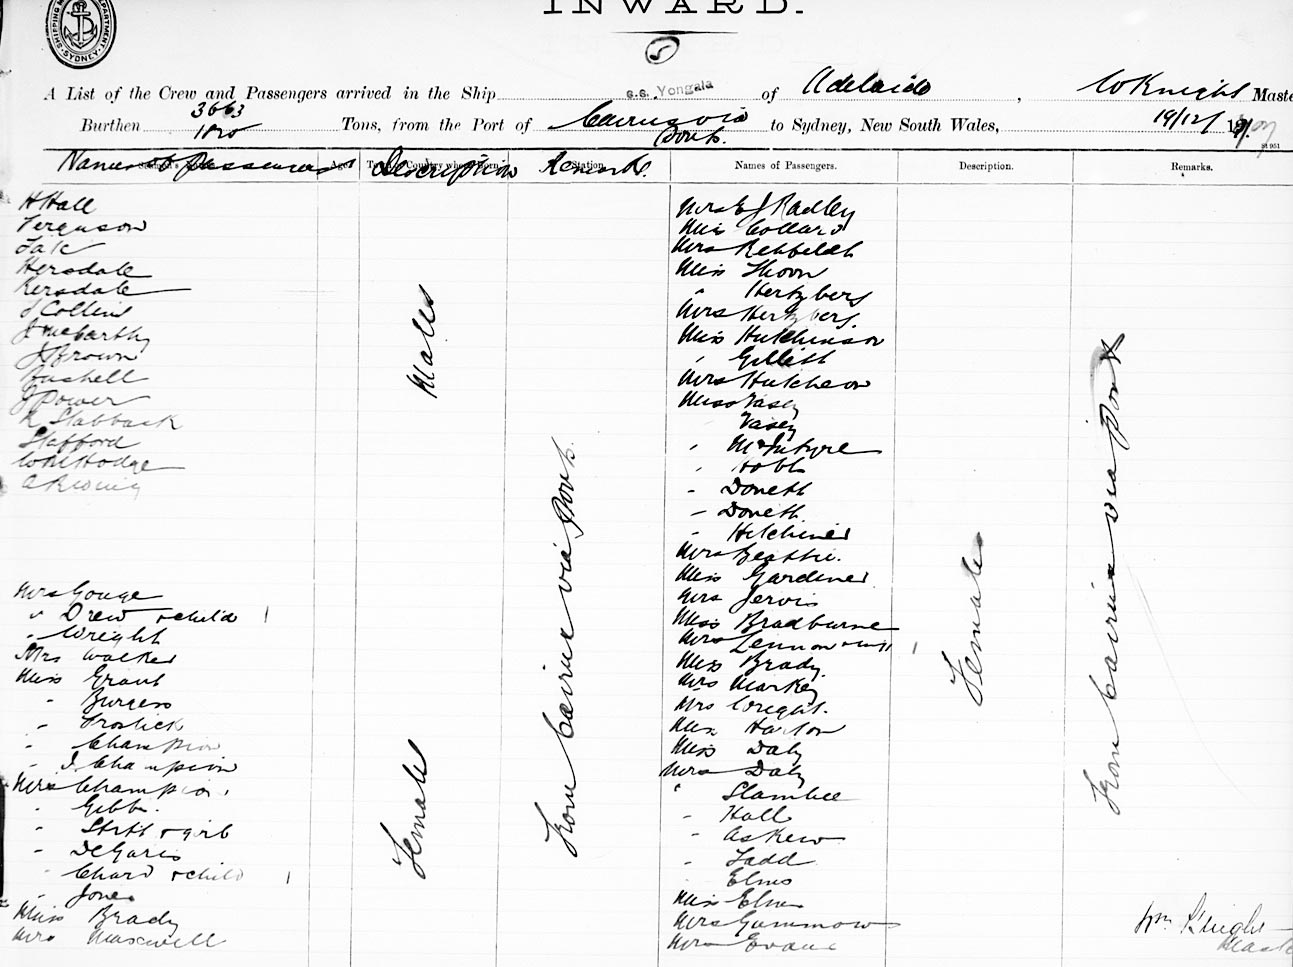 INWARD.
SHIPPING DEPARTMENT SYDNEY
5
A List of the Crew and Passengers arrived in the Ship S.S. Yongala of Adelaide, W Knight Maste
Burthen 3663 1820 Tons, from the Port of Cairns via Ports. to Sydney, New South Wales, 19/12/ 1907
Names of Passengers Description Remarks.
Names of Passengers. Description. Remarks.
H Hall
Ferguson
Hersdale
Kersdale
J Collins
J McCarthy
J Brown
Bushell
J Power
R Slabback
Stafford
W M Hodge
Males
Mrs Gouge
" Drew & child 1
" Wright
Mrs Walker
Miss Grant
" Burgess
" Frostick
" Champion
" J. Champion
Mrs Champion
" Gibbs
" Stett & girl
" DeGaris
" Chard & child 1
" Jones
Miss Brady
Mrs Maxwell
Female
From Cairns via Ports.
Mrs E J Radley
Miss Collard
Mrs Rehbeldt
Miss Thoon
" Hertzberg
Mrs Hertzberg.
Miss Hutchinson
" Gillett
Mrs Hutcheon
Miss Vasey
Vasey
" McIntyre
" Hobbs
" Donett
" Donett
" Hitchiner
Mrs Beattie.
Miss Gardiner
Mrs Jervis
Miss Bradburne
Mrs Lennon & inft 1
Miss Brady
Mrs Markey
Mrs Wright.
Miss Harton
Miss Daly
Mrs Daly
" Slambee
" Hall
" Askew
" Ladd
Elms
Miss Elms
Mrs Gammow
Mrs Evans
Female
From Cairns via Ports
Wm Knight
Master